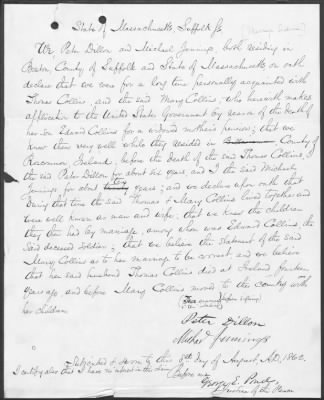 State of Massachusetts, Suffolk ss
We Peter Dillon and Michael Jennings, both residing in
Boston, County of Suffolk and State of Massachusetts on oath
declare that we were for a long time personally acquainted with
Thomas Collins, and the said Mary Collins, who herewith makes
application to the United States Government by reason of the Death of
her son Edward Collins for a widowed mothers pension; that we
knew them very well while they resided in County of
Roscommon Ireland, before the Death of the said Thomas Collins, I
the said Peter Dillon for about six years and I the said Michael
Jennings for about years; and we declare upon oath that
During that time the said Thomas & Mary Collins lived together and
were well known as man and wife; that we knew the children
they then had by marriage, among whom was Edward Collins the
Said deceased soldier; that we believe the statement of the said
Mary Collins as to her marriage to be correct, and we believe
that her said husband Thomas Collins died at Ireland fourteen
years ago and before Mary Collins moved to this country with
her children
before signing
Peter Dillon
Jennings
Subscribed & Sworn to this day of August A.D. 1862.
I certify also that I have no interest in this claim before me
George E.
Justice of the Peace